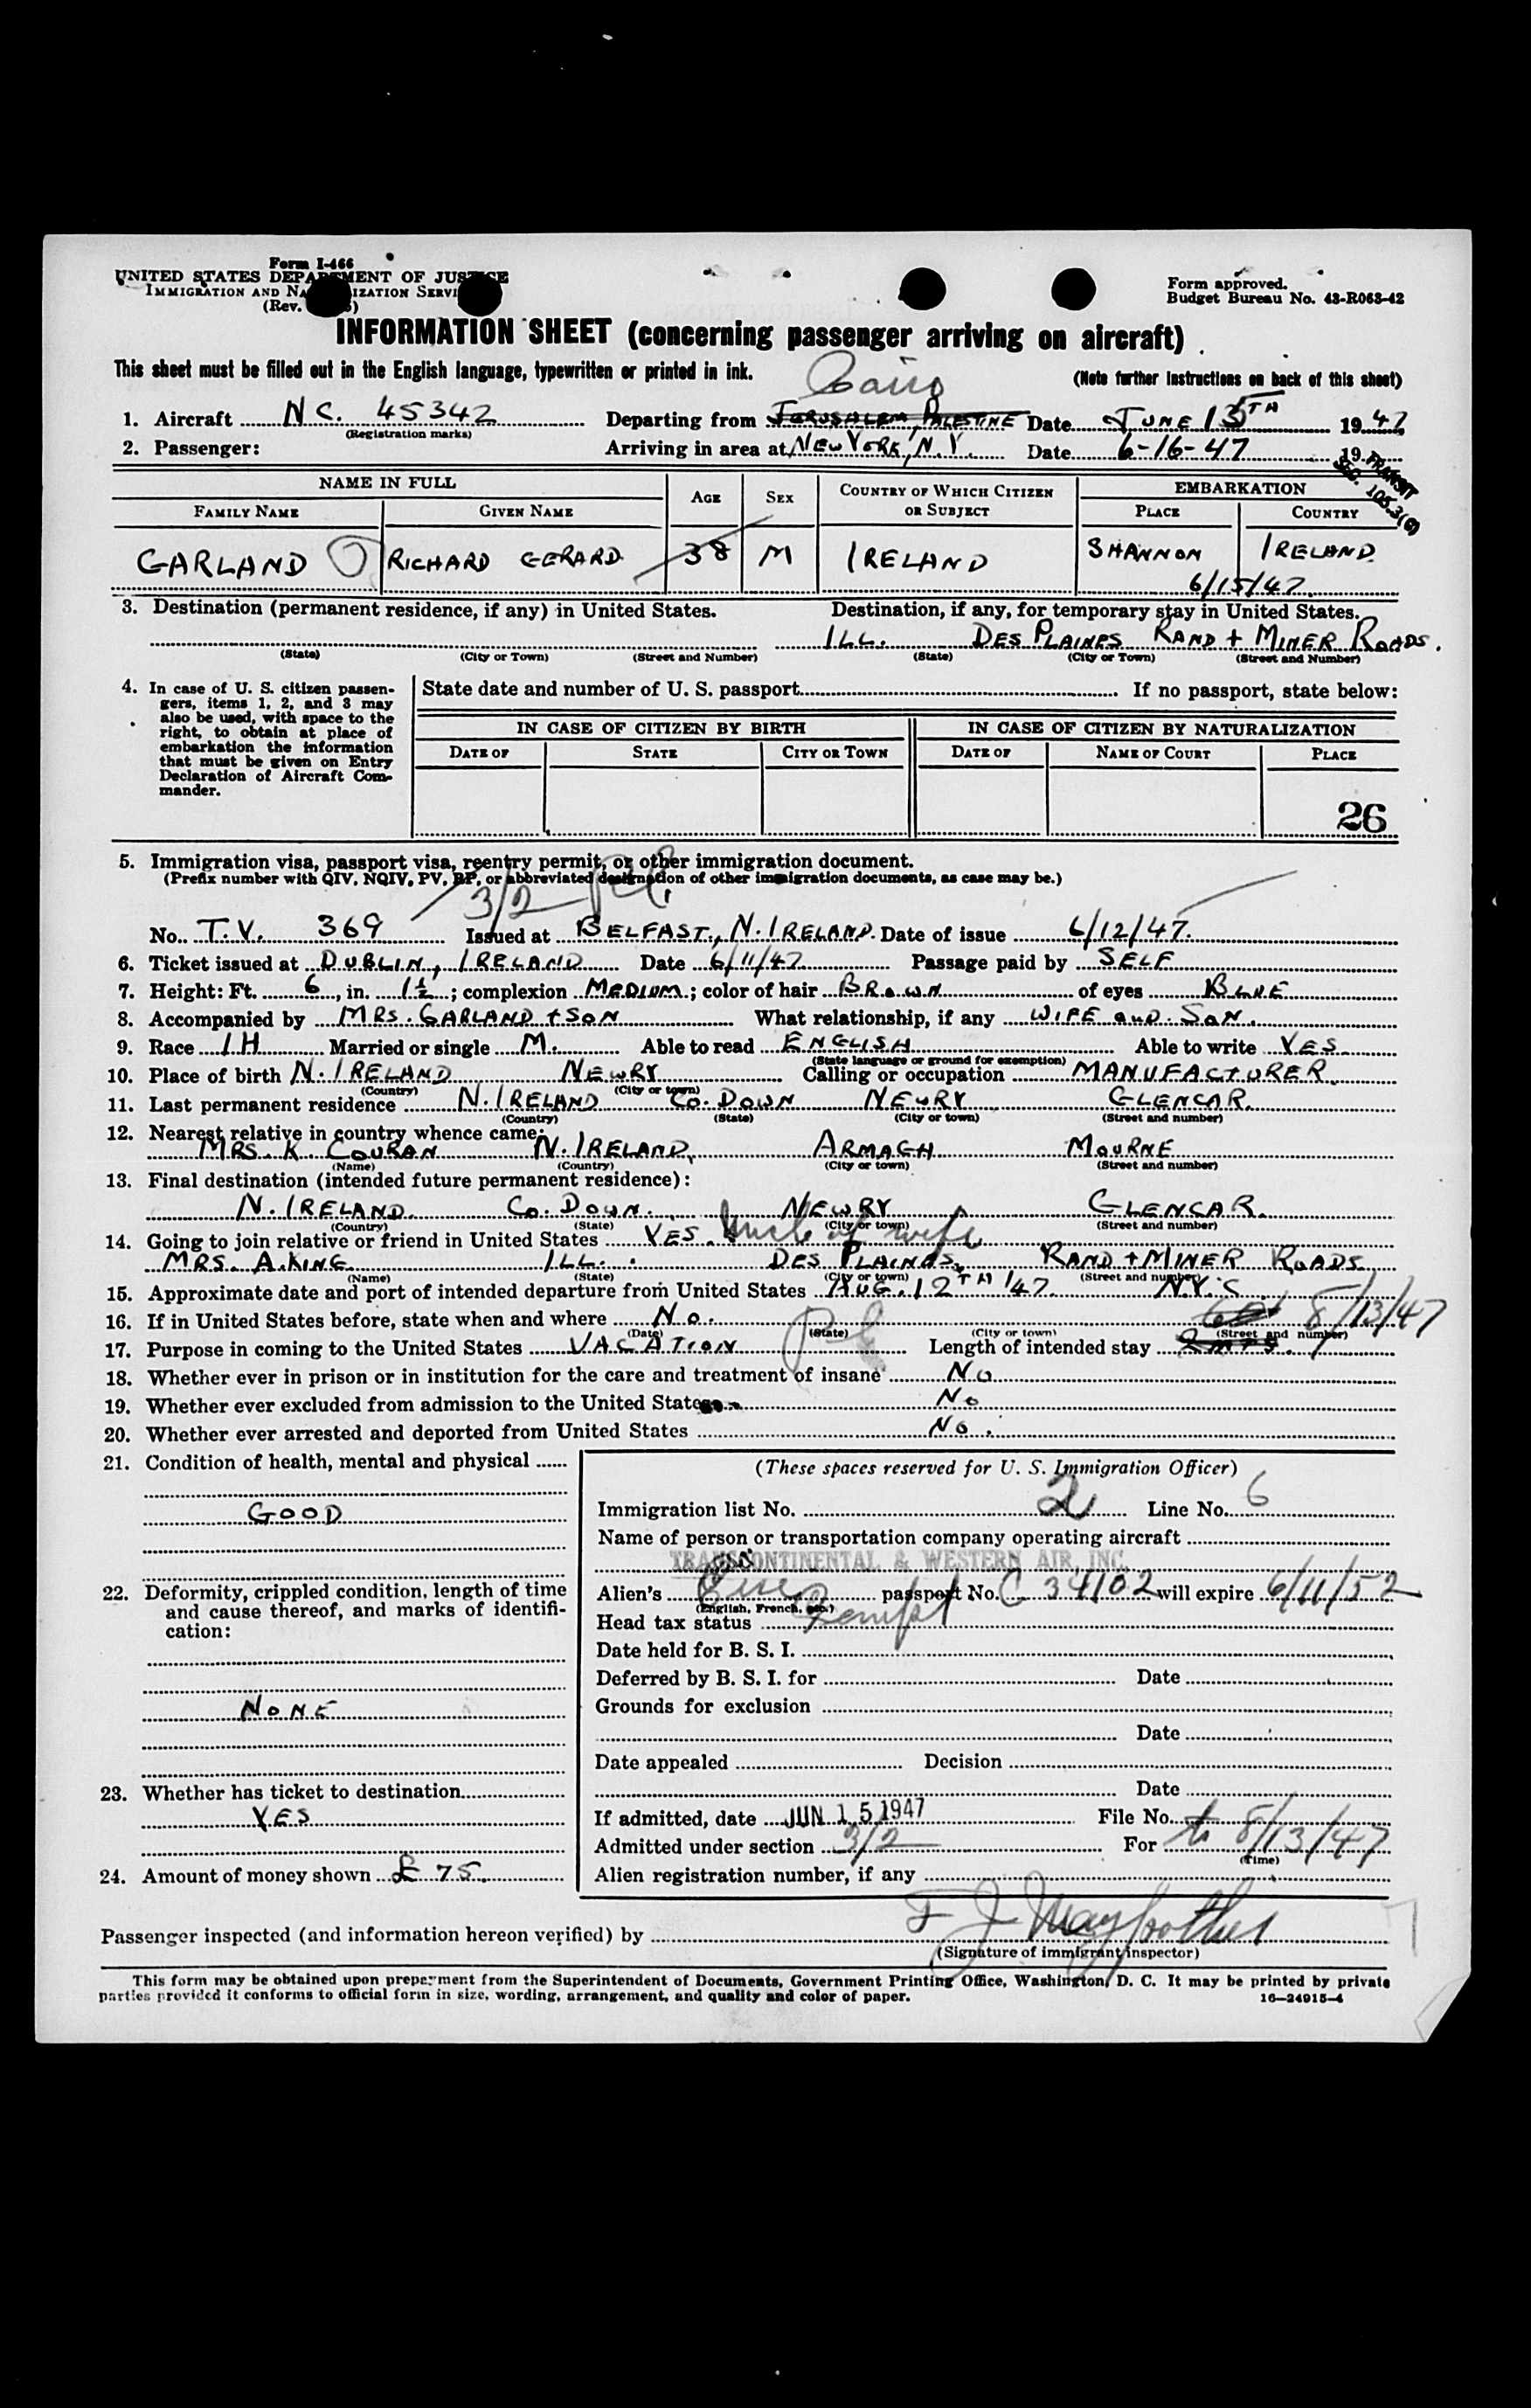 Form I-466
UNITED STATES DEPARTMENT OF JUSTICE
IMMIGRATION AND NATURALIZATION SERVICE
(Rev.
Form approved.
Budget Bureau No. 43-R063-42
INFORMATION SHEET (concerning passenger arriving on aircraft)
This sheet must be filled out in the English language, typewritten or printed in ink.
Cairo
(Note further instructions on back of this sheet)
1. Aircraft NC. 45342 Departing from JERUSALEM, PALESTINE Date JUNE 15TH 1947
(Registration marks)
2. Passenger: Arriving in area at NEW YORK, N.Y. Date 6-16-47 19
TRANSIT
SEC. 105.3(G)
NAME IN FULL AGE SEX COUNTRY OF WHICH CITIZEN OR SUBJECT EMBARKATION
FAMILY NAME GIVEN NAME PLACE COUNTRY
GARLAND RICHARD GERARD 38 M IRELAND SHANNON IRELAND
6/15/47.
3. Destination (permanent residence, if any) in United States. Destination, if any, for temporary stay in United States.
ILL. DES PLAINES RAND + MINER ROADS.
(State) (City or Town) (Street and Number) (State) (City or Town) (Street and Number)
4. In case of U. S. citizen passengers, items 1, 2, and 3 may also be used, with space to the right, to obtain at place of embarkation the information that must be given on Entry Declaration of Aircraft Commander.
State date and number of U. S. passport If no passport, state below:
IN CASE OF CITIZEN BY BIRTH IN CASE OF CITIZEN BY NATURALIZATION
DATE OF STATE CITY OR TOWN DATE OF NAME OF COURT PLACE
26
5. Immigration visa, passport visa, reentry permit, or other immigration document.
(Prefix number with QIV, NQIV, PV, RP, or abbreviated designation of other immigration documents, as case may be.)
3/2
No. T.V. 369 Issued at BELFAST, N. IRELAND. Date of issue 6/12/47.
6. Ticket issued at DUBLIN, IRELAND Date 6/11/47 Passage paid by SELF
7. Height: Ft. 6, in. 1½; complexion MEDIUM; color of hair BROWN of eyes BLUE
8. Accompanied by MRS. GARLAND + SON What relationship, if any WIFE and SON.
9. Race IH Married or single M. Able to read ENGLISH Able to write YES
(State language or ground for exemption)
10. Place of birth N. IRELAND NEWRY Calling or occupation MANUFACTURER.
(Country) (City or town)
11. Last permanent residence N. IRELAND CO. DOWN NEWRY GLENCAR.
(Country) (State) (City or town) (Street and number)
12. Nearest relative in country whence came:
MRS. K. COURAN N. IRELAND, ARMAGH MOURNE
(Name) (Country) (City or town) (Street and number)
13. Final destination (intended future permanent residence):
N. IRELAND. CO. DOWN. NEWRY GLENCAR.
(Country) (State) (City or town) (Street and number)
14. Going to join relative or friend in United States YES. Uncle of wife
MRS. A. KING ILL. DES PLAINES, RAND + MINER ROADS
(Name) (State) (City or town) (Street and number)
15. Approximate date and port of intended departure from United States AUG. 12TH /47. N.Y.C.
16. If in United States before, state when and where No. 8/13/47
(Date) (State) (City or town) (Street and number)
17. Purpose in coming to the United States VACATION Length of intended stay
18. Whether ever in prison or in institution for the care and treatment of insane No
19. Whether ever excluded from admission to the United States No
20. Whether ever arrested and deported from United States No.
21. Condition of health, mental and physical
GOOD
22. Deformity, crippled condition, length of time and cause thereof, and marks of identification:
NONE
23. Whether has ticket to destination
YES
24. Amount of money shown £ 75.
(These spaces reserved for U. S. Immigration Officer)
Immigration list No. 2 Line No. 6
Name of person or transportation company operating aircraft
TRANSCONTINENTAL & WESTERN AIR, INC.
Alien's Eire passport No. C 34102 will expire 6/11/52
(English, French, etc.)
Head tax status Exempt
Date held for B. S. I.
Deferred by B. S. I. for Date
Grounds for exclusion
Date
Date appealed Decision
Date
If admitted, date JUN 15 1947 File No.
Admitted under section 3/2 For to 8/13/47
(Time)
Alien registration number, if any
Passenger inspected (and information hereon verified) by
(Signature of immigrant inspector)
This form may be obtained upon prepayment from the Superintendent of Documents, Government Printing Office, Washington, D. C. It may be printed by private
parties provided it conforms to official form in size, wording, arrangement, and quality and color of paper. 16—24915-4